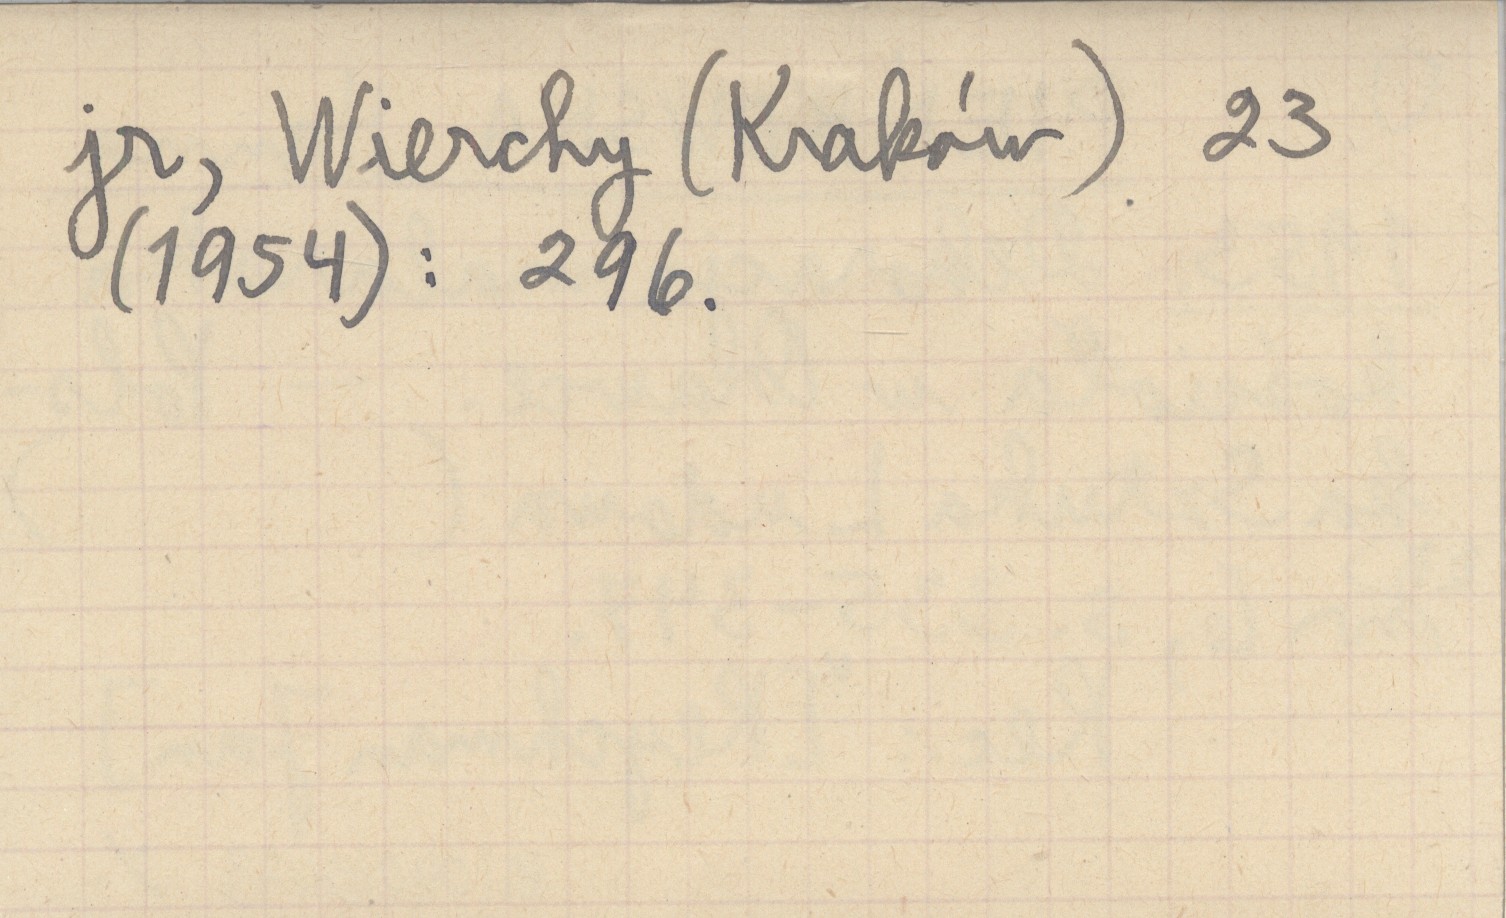 jr, Wierchy (Kraków). 23
(1954): 296.